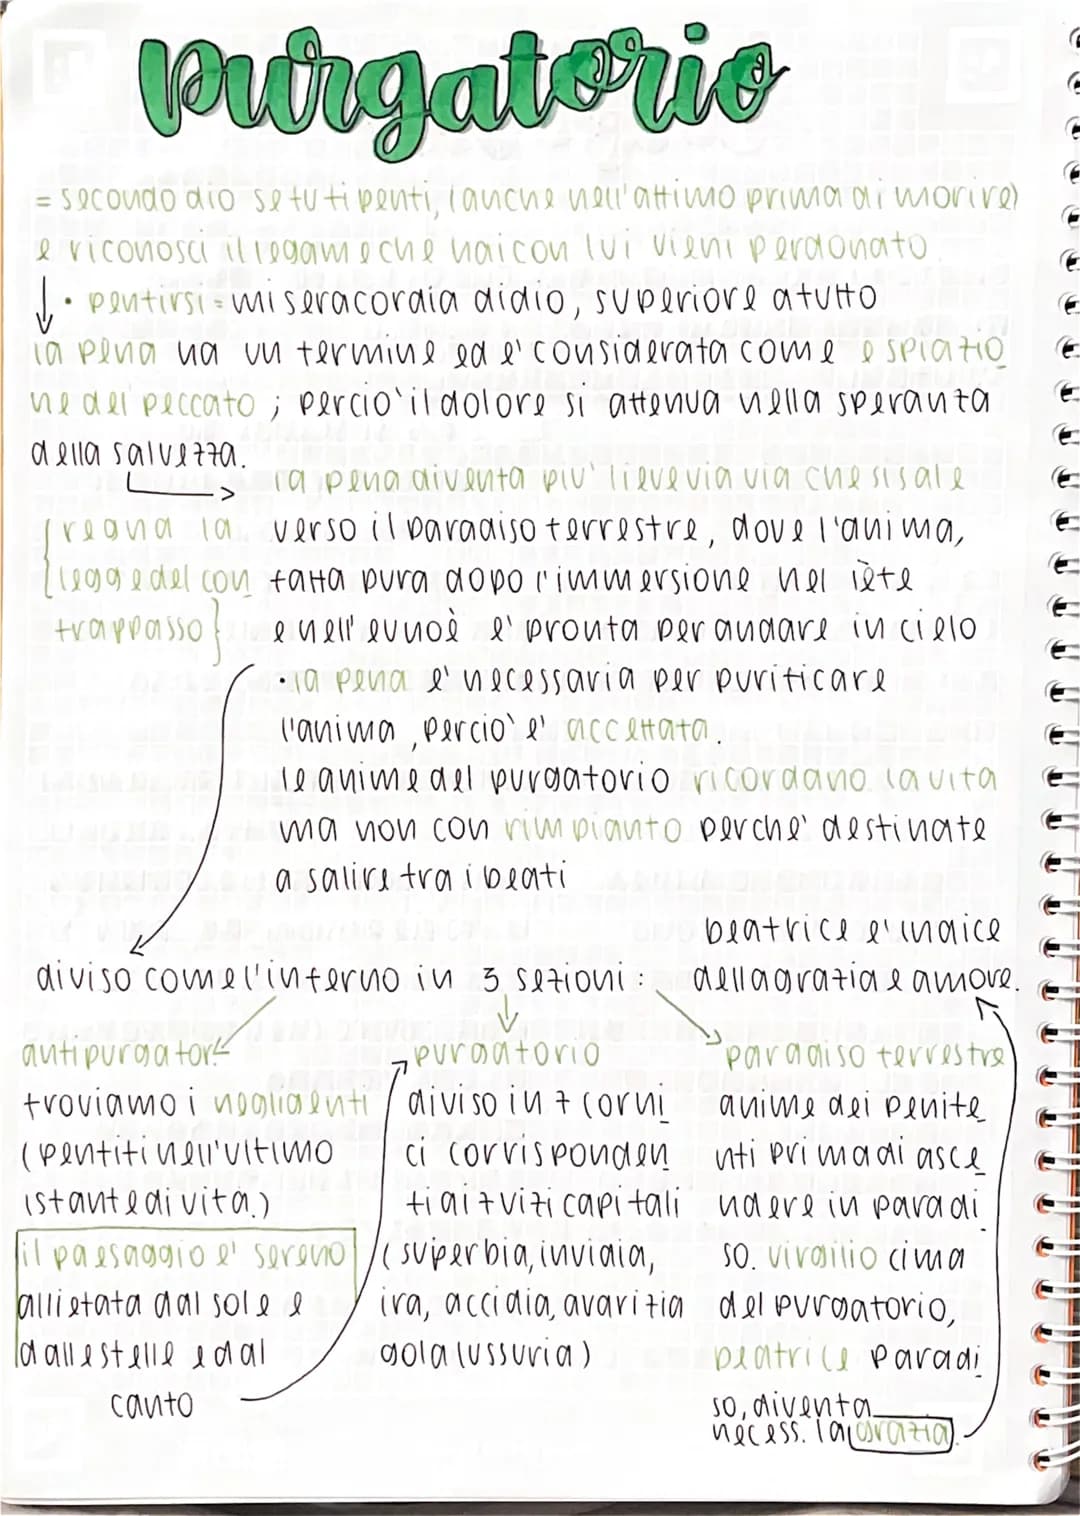 purgatorio
= secondo dio se tu ti penti, (anche nell'attimo prima di morire)
e riconosci il legame che hai con lui vieni perdonato.
↓ • pentirsi = miseracordia di dio, superiore a tutto
la pena ha un termine ed e' considerata come espiazio
ne del peccato ; percio' il dolore si attenua nella speranza
della salvezza.
la pena diventa piu' lieve via via che si sale
verso il paradiso terrestre, dove l'anima,
fatta pura dopo l'immersione nel lète
e nell'eunoè e' pronta per andare in cielo
{regna la
legge del con
trappasso}
• la pena e' necessaria per purificare
l'anima, percio' e' accettata.
le anime del purgatorio ricordano la vita
ma non con rimpianto perche' destinate
a salire tra i beati
diviso come l'inferno in 3 sezioni :
beatrice e' indice
della grazia e amore.
antipurgator
troviamo i negligenti
(pentiti nell'ultimo
istante di vita.)
il paesaggio e' sereno
allietata dal sole e
dalle stelle e dal
canto
purgatorio
diviso in 7 corni
ci corrisponden
ti ai 7 vizi capitali
(superbia, invidia,
ira, accidia, avarizia
gola lussuria)
paradiso terrestre
anime dei penite
nti prima di asce
ndere in paradi
so. virgilio cima
del purgatorio,
beatrice paradi
so, diventa
necess. la grazia.